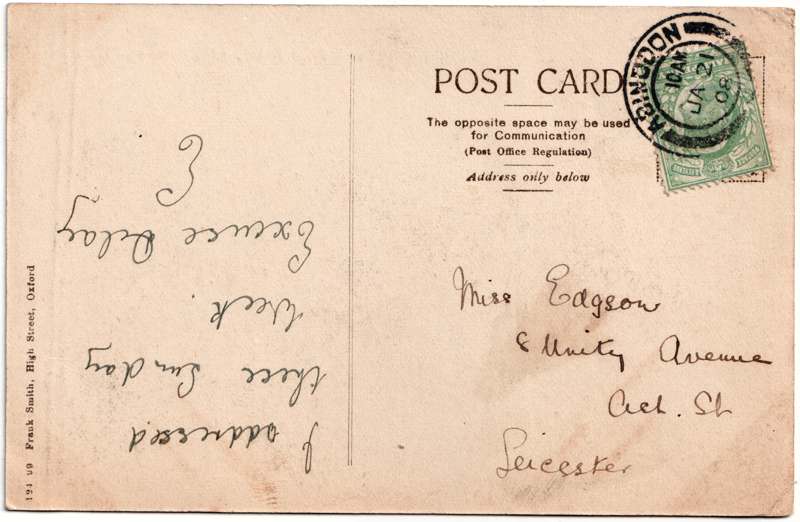 POST CARD
The opposite space may be used
for Communication
(Post Office Regulation)
Address only below
ABINGDON
10 AM
JA 21
08
Miss Edgson
8 Unity Avenue
St
Leicester
I addressed
Sunday
Week
Excuse Delay
E
Frank Smith, High Street, Oxford